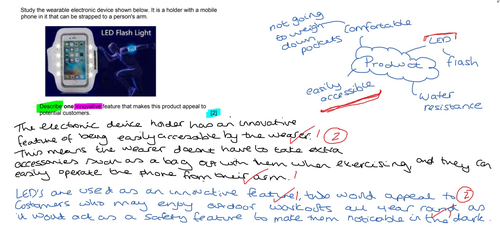 Study the wearable electronic device shown below. It is a holder with a mobile
phone in it that can be strapped to a person's arm.
LED Flash Light
Describe one innovative feature that makes this product appeal to
potential customers. [2]
not going
to weigh
down
pockets
comfortable
LED
Product
flash
easily
accessible
water
resistance
The electronic device holder has an innovative
feature of being easily accesable by the wearer. 1 2
This means the wearer doesnt have to take extra
accessories such as a bag out with them when exercising and they can
easily operate the phone from their arm. 1
LED's are used as an innovative feature, 1 this would appeal to 2
customers who may enjoy outdoor workouts all year round as
it would act as a safety feature to make them noticable in the dark. 1